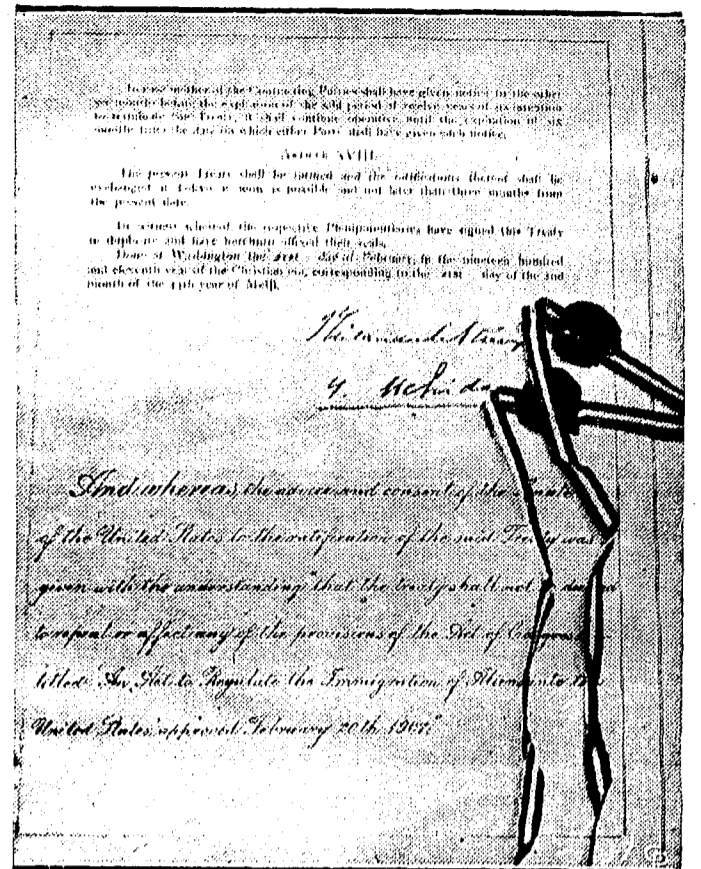 In case neither of the Contracting Parties shall have given notice to the other
six months before the expiration of the said period of twelve years of its intention
to terminate the Treaty, it shall continue operative until the expiration of six
months from the day on which either Party shall have given such notice.
ARTICLE XVIII.
The present Treaty shall be ratified and the ratifications thereof shall be
exchanged at Tokyo as soon as possible and not later than three months from
the present date.
In witness whereof, the respective Plenipotentiaries have signed this Treaty
in duplicate and have hereunto affixed their seals.
Done at Washington the 21st day of February, in the nineteen hundred
and eleventh year of the Christian era, corresponding to the 21st day of the 2nd
month of the 44th year of Meiji.
Y. Uchida
And whereas, the advice and consent of the Senate
of the United States to the ratification of the said Treaty was
given with the understanding "that the treaty shall not be
to repeal or affect any of the provisions of the Act of Congress
titled "An Act to Regulate the Immigration of Aliens into the
United States" approved February 20th 1907."